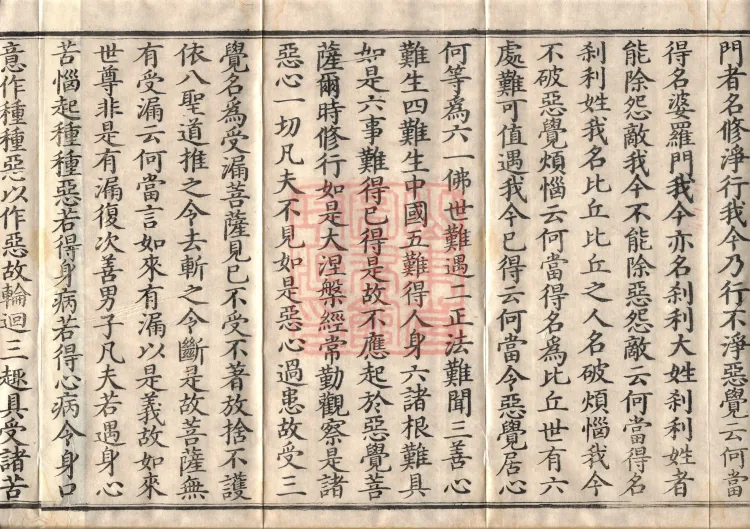 門者名修淨行我今乃行不淨惡覺云何當
得名婆羅門我今亦名刹利大姓刹利姓者
能除怨敵我今不能除惡怨敵云何當得名
刹利姓我名比丘比丘之人名破煩惱我今
不破惡覺煩惱云何當得名為比丘世有六
處難可值遇我今已得云何當令惡覺居心
何等為六一佛世難遇二正法難聞三善心
難生四難生中國五難得人身六諸根難具
如是六事難得已得是故不應起於惡覺菩
薩爾時修行如是大涅槃經常勤觀察是諸
惡心一切凡夫不見如是惡心過患故受三
覺名為受漏菩薩見已不受不著放捨不護
依八聖道推之令去斬之令斷是故菩薩無
有受漏云何當言如來有漏以是義故如來
世尊非是有漏復次善男子凡夫若遇身心
苦惱起種種惡若得身病若得心病令身口
意作種種惡以作惡故輪迴三趣具受諸苦